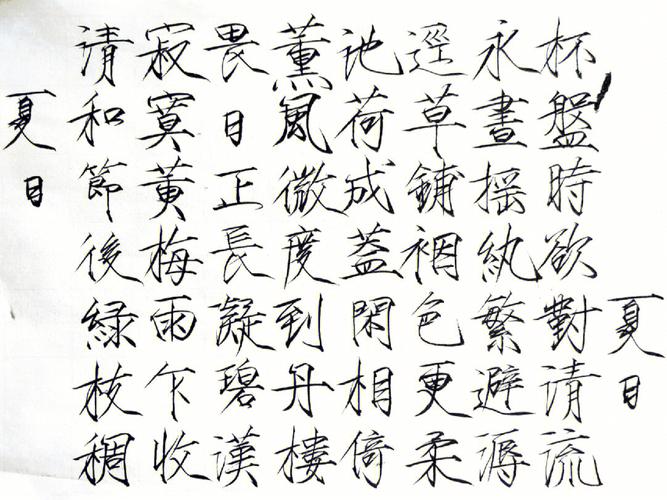 夏日
清和節後綠枝稠
寂寞黃梅雨乍收
畏日正長凝碧漢
薰風微度到丹樓
池荷成蓋閑相倚
逕草鋪裀色更柔
永晝搖紈繁避溽
杯盤時欲對清流
夏日